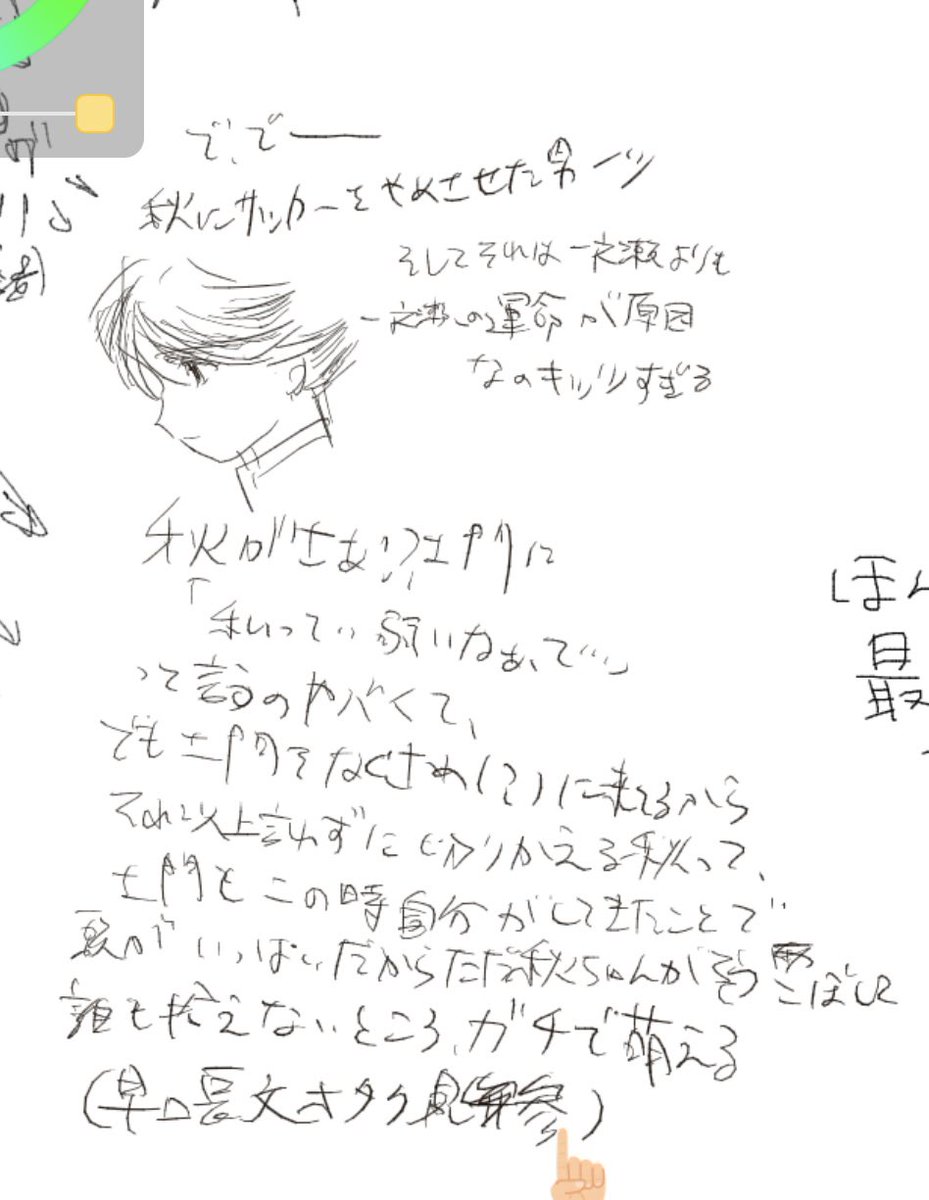 で、でー
秋にサッカーをやめさせた男一ツ
そしてそれは一之瀬よりも
一之瀬の運命が原因
なのキッツすぎる
秋がさあ!?土門に
↑
私っていい弱いなぁ、て…
って言うのヤバくて、
でも土門をなぐさめ(?)に来てるから
それ以上言わずにふりかえる秋って、
土門もこの時自分がしてきたことで
頭がいっぱいだからただ秋ちゃんがそう
こぼして
誰も拾えないところ、ガチで萌える
(早口長文オタク見参)
ほん
最